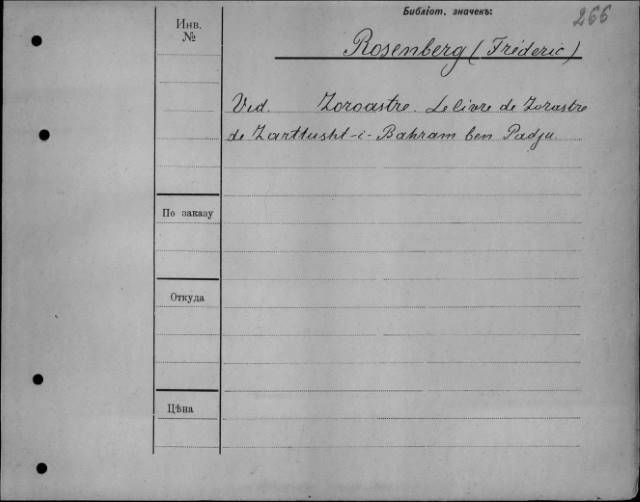 Библіот. значекъ:
266
Инв.
№
Rosenberg (Fréderic)
Vid. Zoroastre. Le livre de Zorastre
de Zarttusht-i-Bahram ben Padju.
По заказу
Откуда
Цѣна